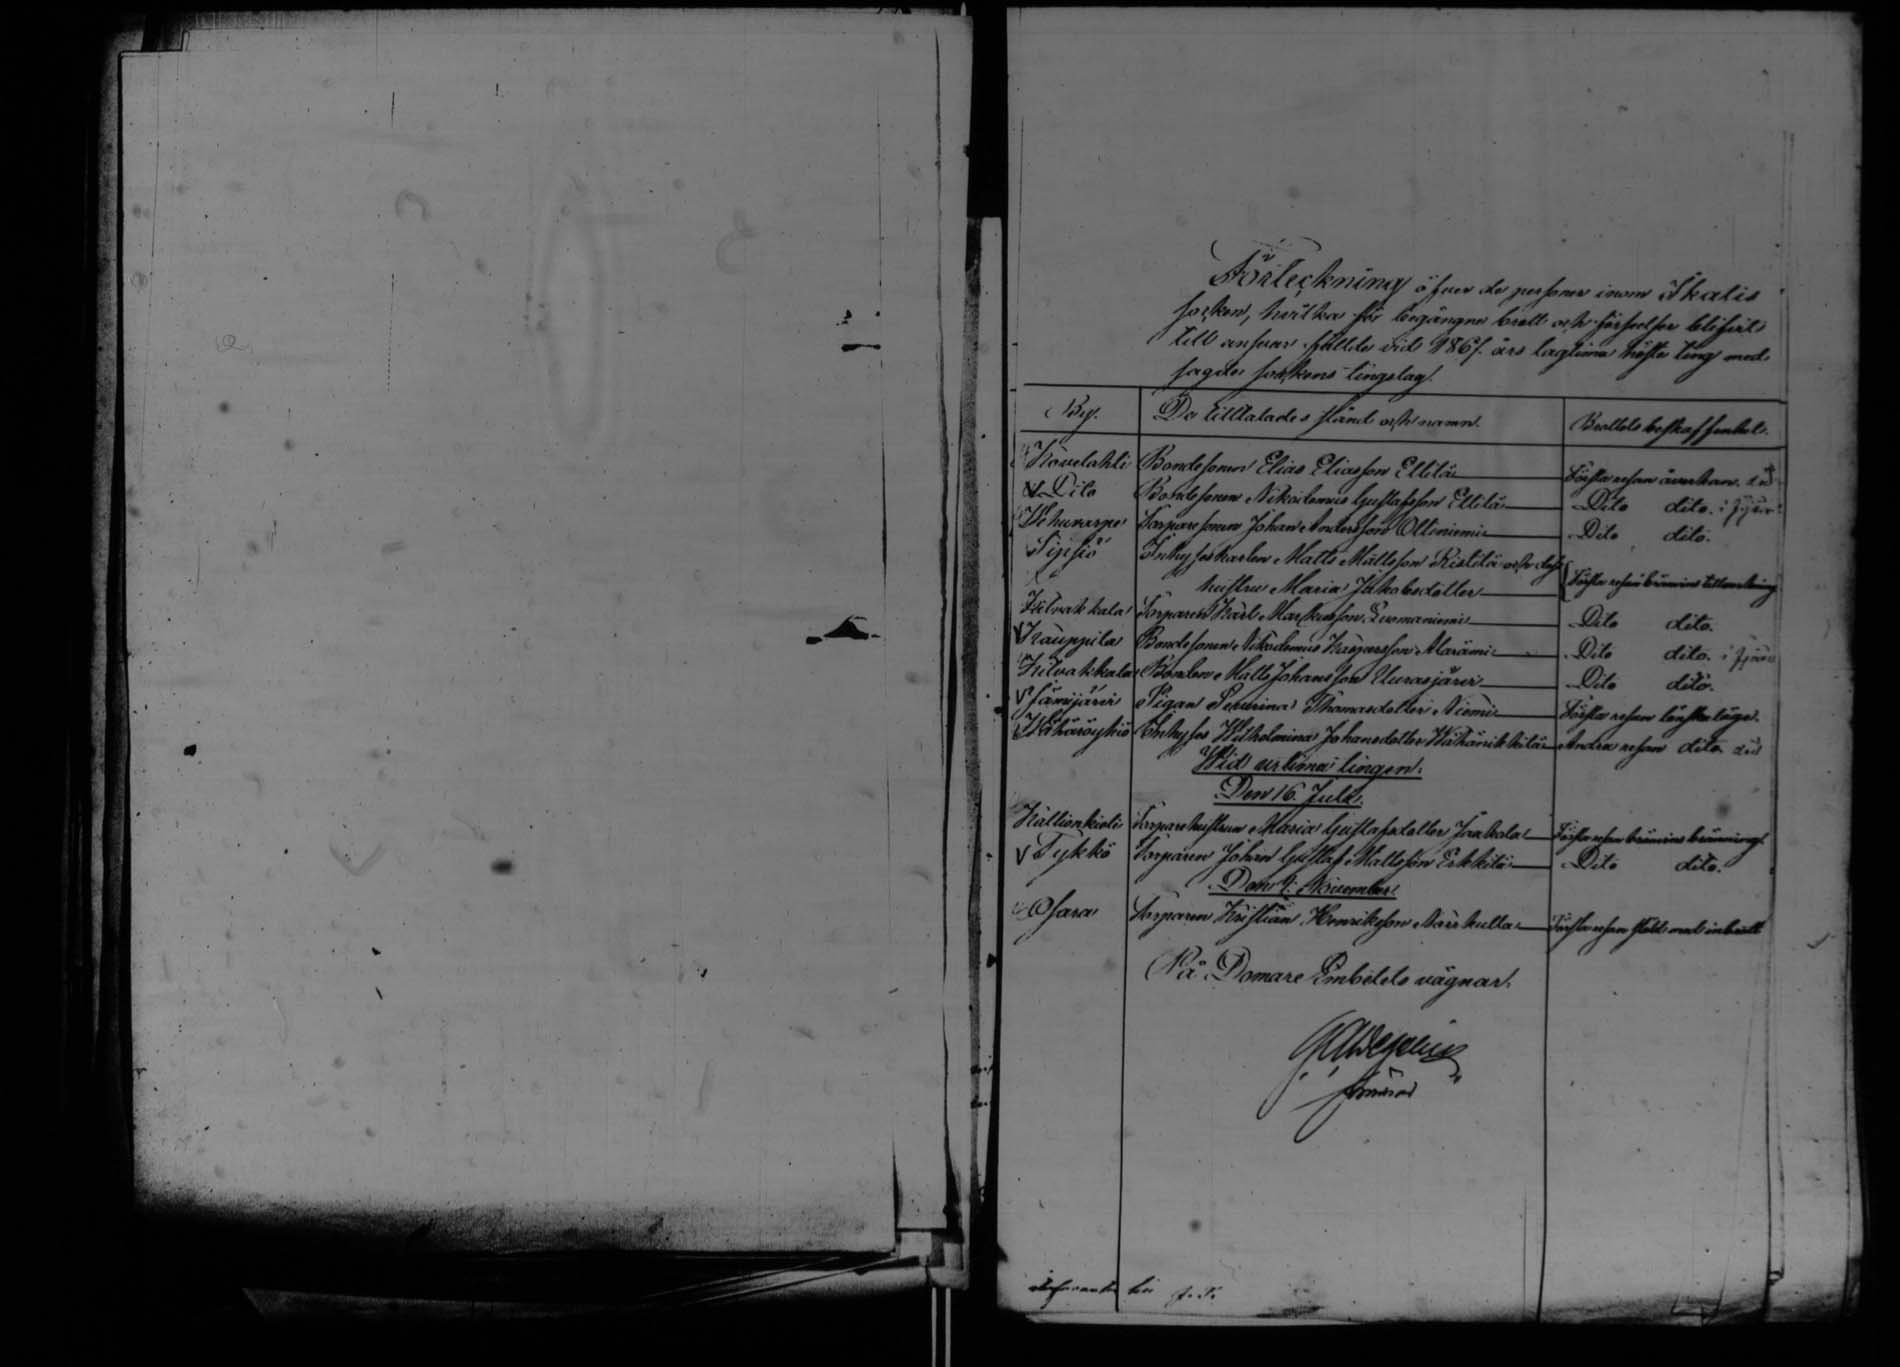 Förteckning öfver de personer inom Ikalis
socken, hvilka för begångne brott och förseelser blifvit
till ansvar fällde vid 1861 års lagtima höste ting med
sagde sockens tingslag.
By. De tilltalades stånd och namn. Brottets beskaffenhet.
Kovelahti Bondesonen Elias Eliasson Ellilä Första resan åverkan.
Dito Bondesonen Nikodemus Gustafsson Ellilä Dito dito.
Torparesonen Johan Andersson Dito dito.
Sipsiö Inhyseskarlen Matts Mattsson Ristilä och dess
hustru Maria Jakobsdotter Första resan bränvins
Kilvakkala Torparen Karl Markusson Luomaniemi Dito dito.
Kauppila Bondesonen Nikodemus Kaspersson Dito dito.
Kilvakkala Bonden Matts Johansson Uurasjärvi Dito dito.
Jämijärvi Pigan Severina Thomasdotter Niemi Första resan lönskaläge.
Inhyses Wilhelmina Johansdotter Andra resan dito.
Wid urtima tingen.
Den 16. Juli.
Torparehustrun Maria Gustafsdotter Jaakola Första resan bränvins bränning.
Tykkö Torparen Johan Gustaf Mattsson Erkkilä Dito dito.
Den 9. November
Osara Torparen Kristian Henriksson Första resan stöld med inbrott
På Domare Embetets vägnar.